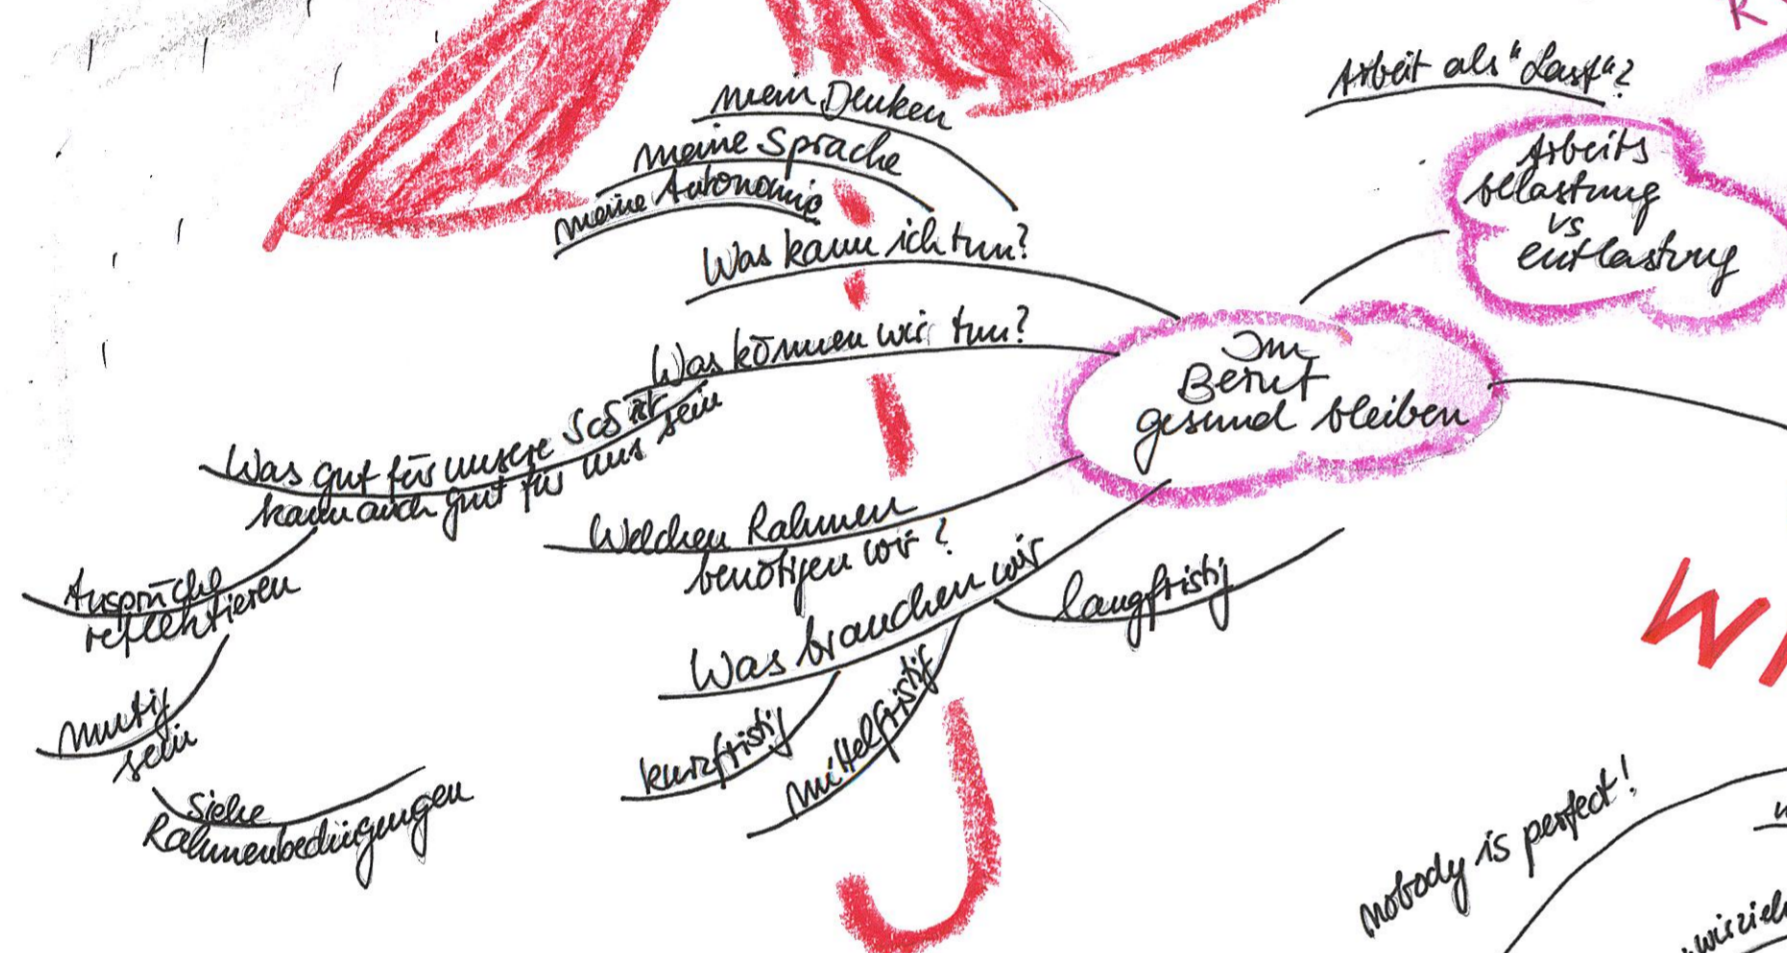 mein Denken
meine Sprache
meine Autonomie
Was kann ich tun?
Was können wir tun?
Was gut für unsere SuS ist
kann auch gut für uns sein
Ansprüche
reflektieren
mutig
sein
Siehe
Rahmenbedingungen
Welchen Rahmen
benötigen wir?
Was brauchen wir
kurzfristig
mittelfristig
langfristig
Im
Beruf
gesund bleiben
Arbeit als "Last"?
Arbeits
belastung
vs
entlastung
nobody is perfect!